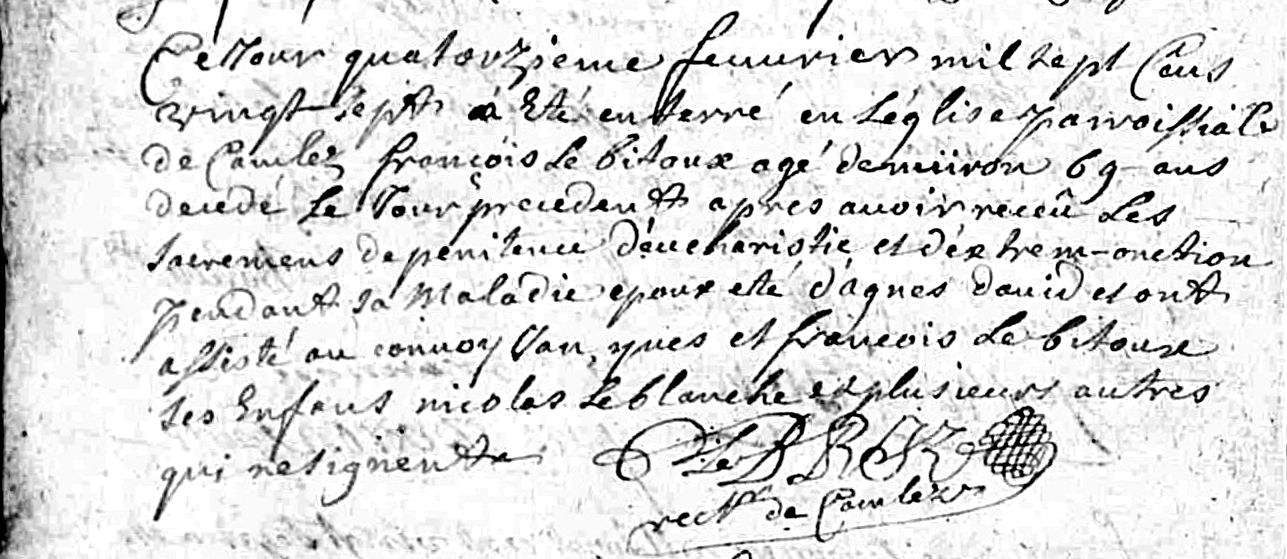 Ce Jour quatorzieme feuurier mil sept Cens
vingt sept a Eté enterré en Léglise parroissiale
de Camlez francois Le bitoux agé denuiron 69 ans
decedé Le Jour precedent apres auoir receu Les
sacremens de penitence d'eucharistie et d'extrem-onction
pendant sa Maladie epoux eté d'agnes dauid et ont
assisté au conuoy Yan, yues et francois Le bitoux
ses Enfans nicolas Le blanche et plusieurs autres
qui ne signent
rectr de Camlez